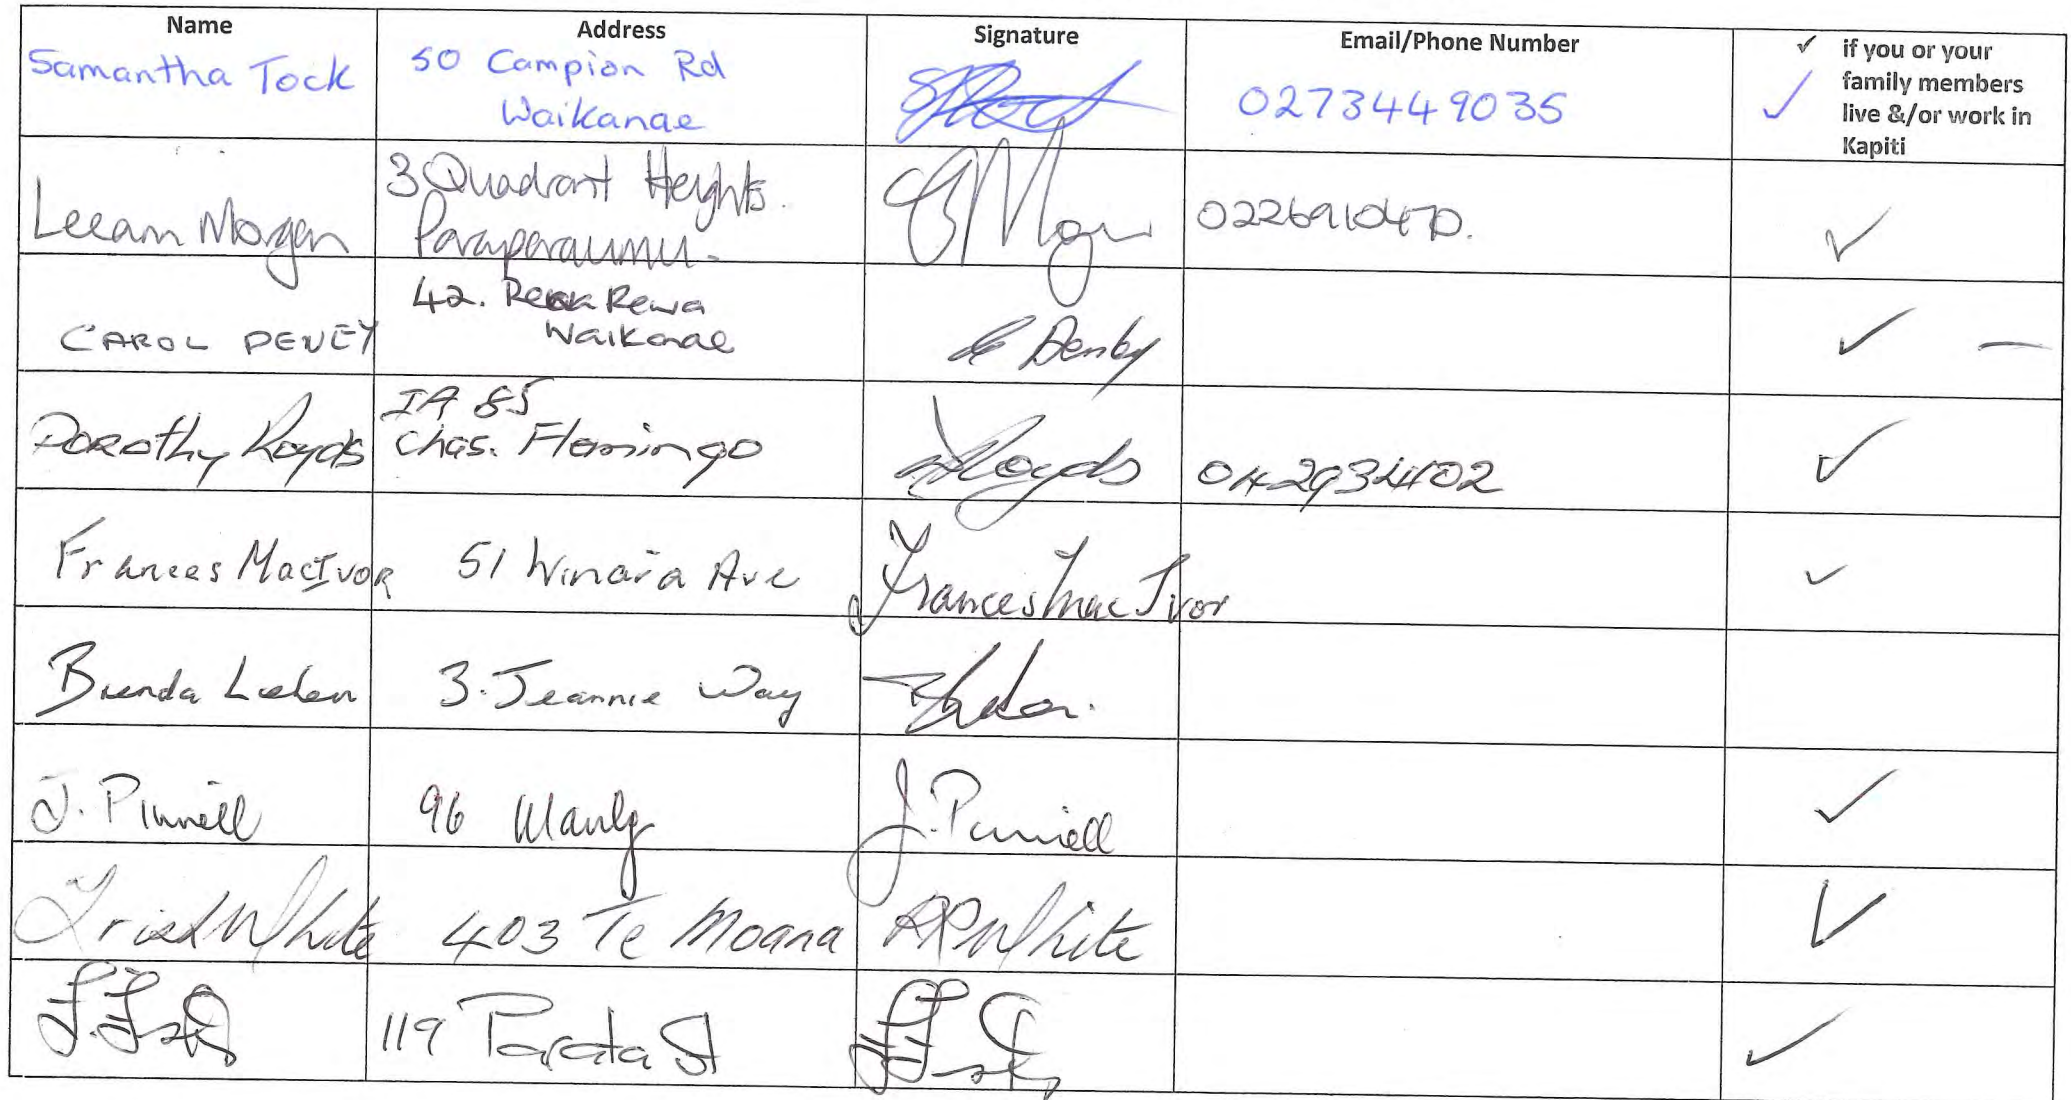 Name Address Signature Email/Phone Number ✓ if you or your family members live &/or work in Kapiti
Samantha Tock 50 Campion Rd Waikanae 0273449035 ✓
Leeam Morgan 3 Quadrant Heights. Paraparaumu. 0226910470. ✓
CAROL DENEY 42. Rewa Waikanae Denby ✓ —
Dorothy Royds 85 Chas. Flamingo Royds 042934402 ✓
Frances MacIvor 51 Winara Ave Frances Mac Ivor ✓
Brenda 3. Jeannie Way
J. Pinnell 96 Manly J. Pinnell ✓
White 403 Te Moana White ✓
119 Parata St ✓